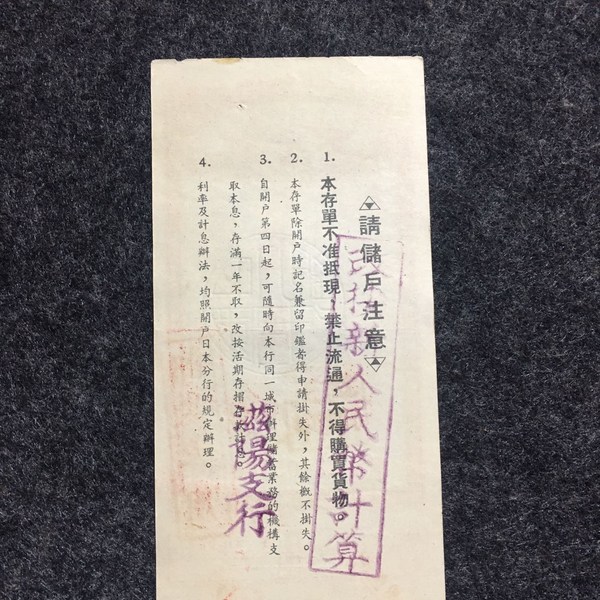 請儲戶注意
1. 本存單不准抵現，禁止流通，不得購買貨物。
2. 本存單除開戶時記名兼留印鑑者得申請掛失外，其餘概不掛失。
3. 自開戶第四日起，可隨時向本行同一城市辦理儲蓄業務的機構支
取本息，存滿一年不取，改按活期存摺
4. 利率及計息辦法，均照開戶日本分行的規定辦理。
新人民幣計算
支行